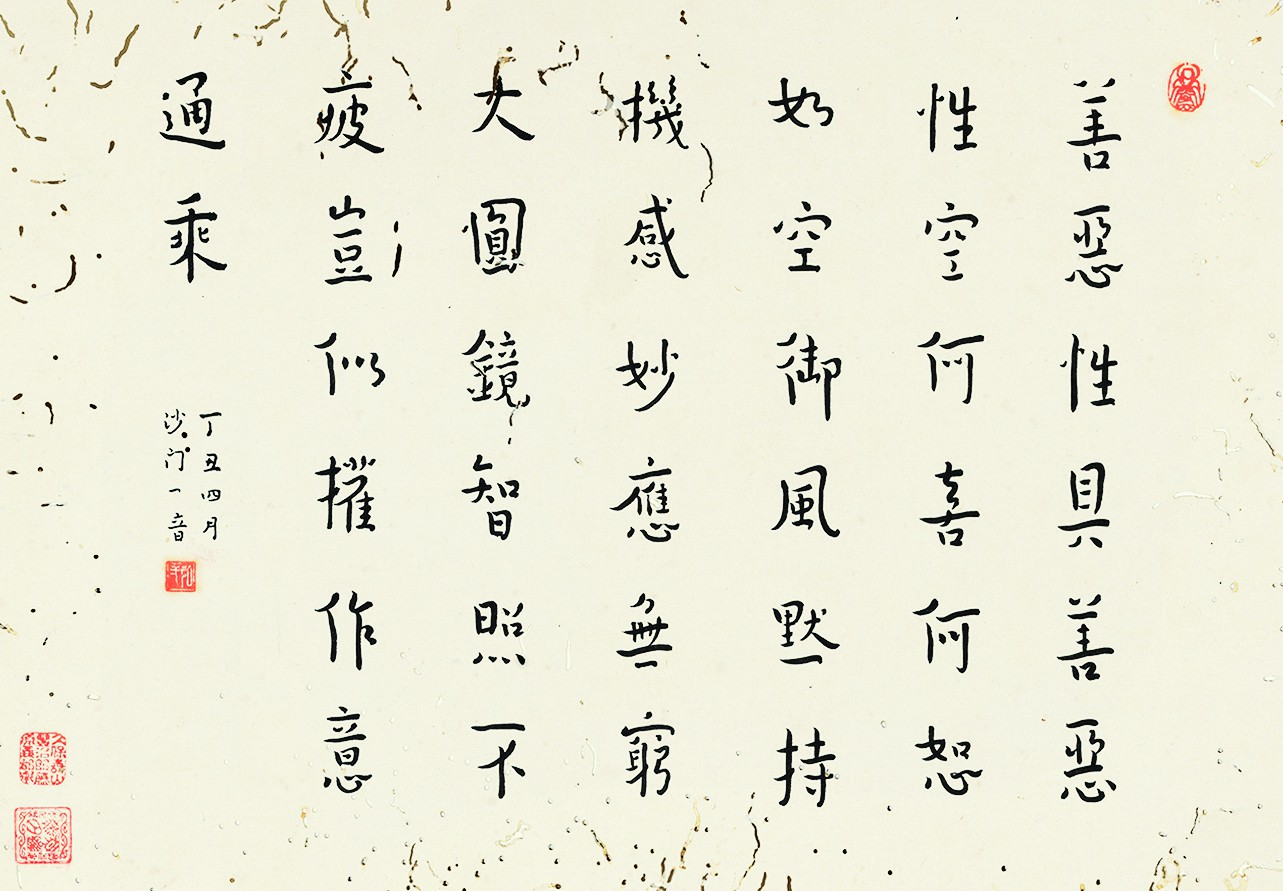 善惡性具善惡
性空何喜何恕
如空御風默持
機感妙應無窮
大圓鏡智照不
疲豈似攉作意
通乘
丁丑四月
沙门一音